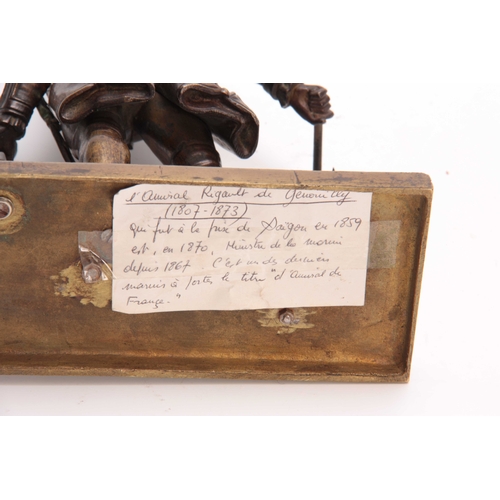 l'Amiral Rigault de Genouilly
(1807-1873)
qui fut à la prise de Saïgon en 1859
est, en 1870, Ministre de la marine
depuis 1867. C'est un des derniers
marins à porter le titre "d'amiral de
France."